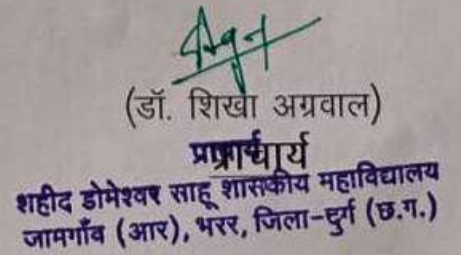 (डॉ. शिखा अग्रवाल)
प्राचार्य
प्राचार्य
शहीद डोमेश्वर साहू शासकीय महाविद्यालय
जामगाँव (आर), भरर, जिला-दुर्ग (छ.ग.)